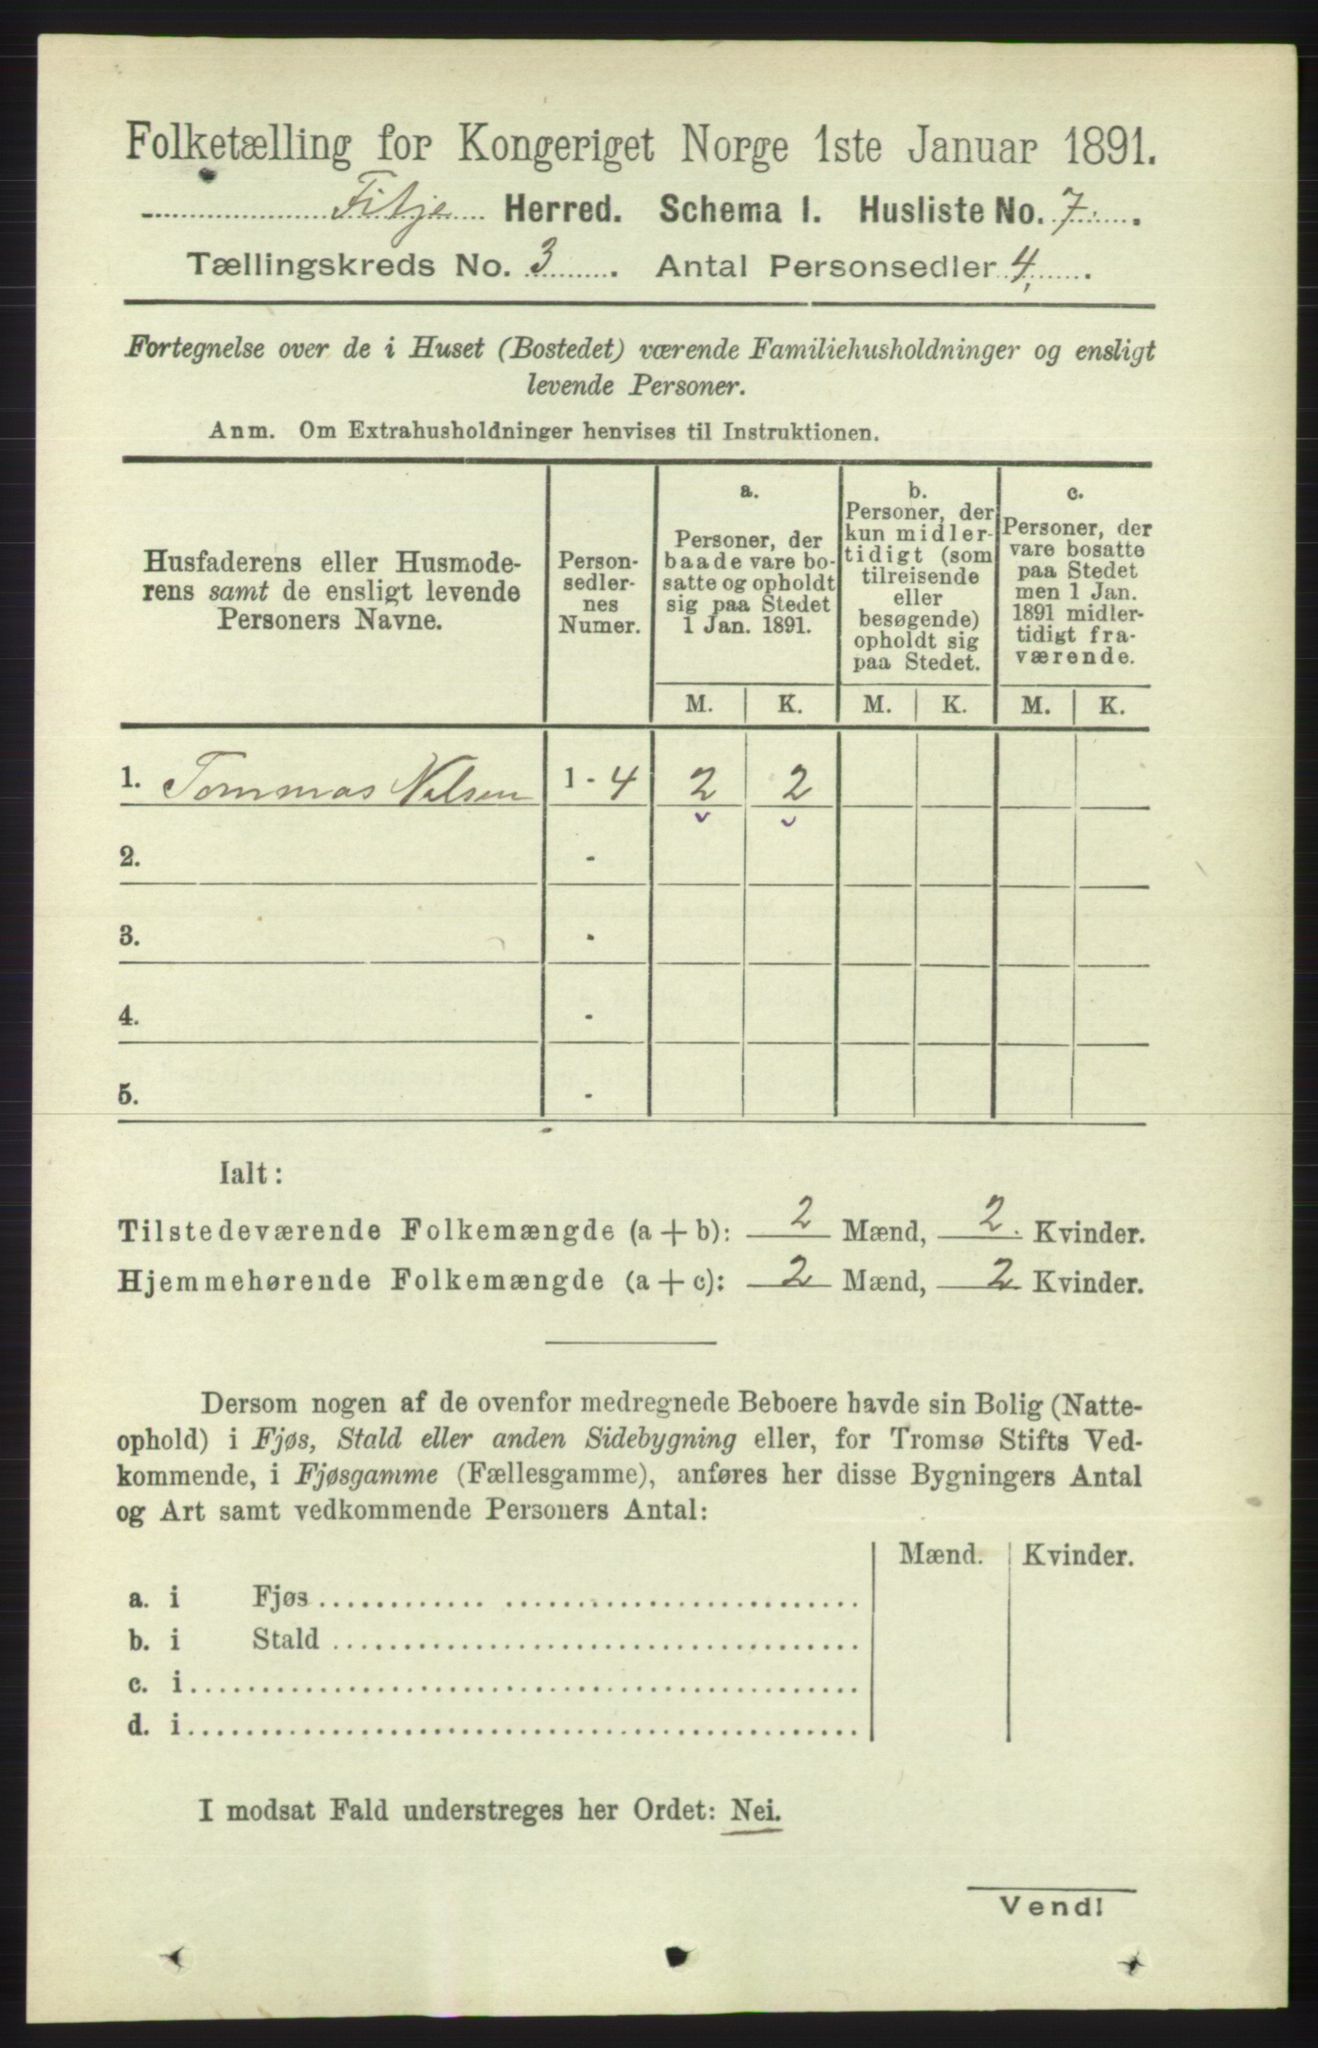 Folketælling for Kongeriget Norge 1ste Januar 1891.
Fitje Herred. Schema I. Husliste No. 7.
Tællingskreds No. 3 . Antal Personsedler 4 .
Fortegnelse over de i Huset (Bostedet) værende Familiehusholdninger og ensligt
levende Personer.
Anm. Om Extrahusholdninger henvises til Instruktionen.
Husfaderens eller Husmode-
rens samt de ensligt levende
Personers Navne.
Person-
sedler-
nes
Numer.
a.
Personer, der
baade vare bo-
satte og opholdt
sig paa Stedet
1 Jan. 1891.
b.
Personer, der
kun midler-
tidigt (som
tilreisende
eller
besøgende)
opholdt sig
paa Stedet.
c.
Personer, der
vare bosatte
paa Stedet
men 1 Jan.
1891 midler-
tidigt fra-
værende.
M. K. M. K. M. K.
1. Tommas Nilsen 1 - 4 2 2
2. -
3. -
4. -
5. -
Ialt:
Tilstedeværende Folkemængde (a + b): 2 Mænd, 2. Kvinder.
Hjemmehørende Folkemængde (a + c): 2 Mænd, 2 Kvinder.
Dersom nogen af de ovenfor medregnede Beboere havde sin Bolig (Natte-
ophold) i Fjøs, Stald eller anden Sidebygning eller, for Tromsø Stifts Ved-
kommende, i Fjøsgamme (Fællesgamme), anføres her disse Bygningers Antal
og Art samt vedkommende Personers Antal:
Mænd. Kvinder.
a. i Fjøs
b. i Stald
c. i
d. i
I modsat Fald understreges her Ordet: Nei.
Vend!